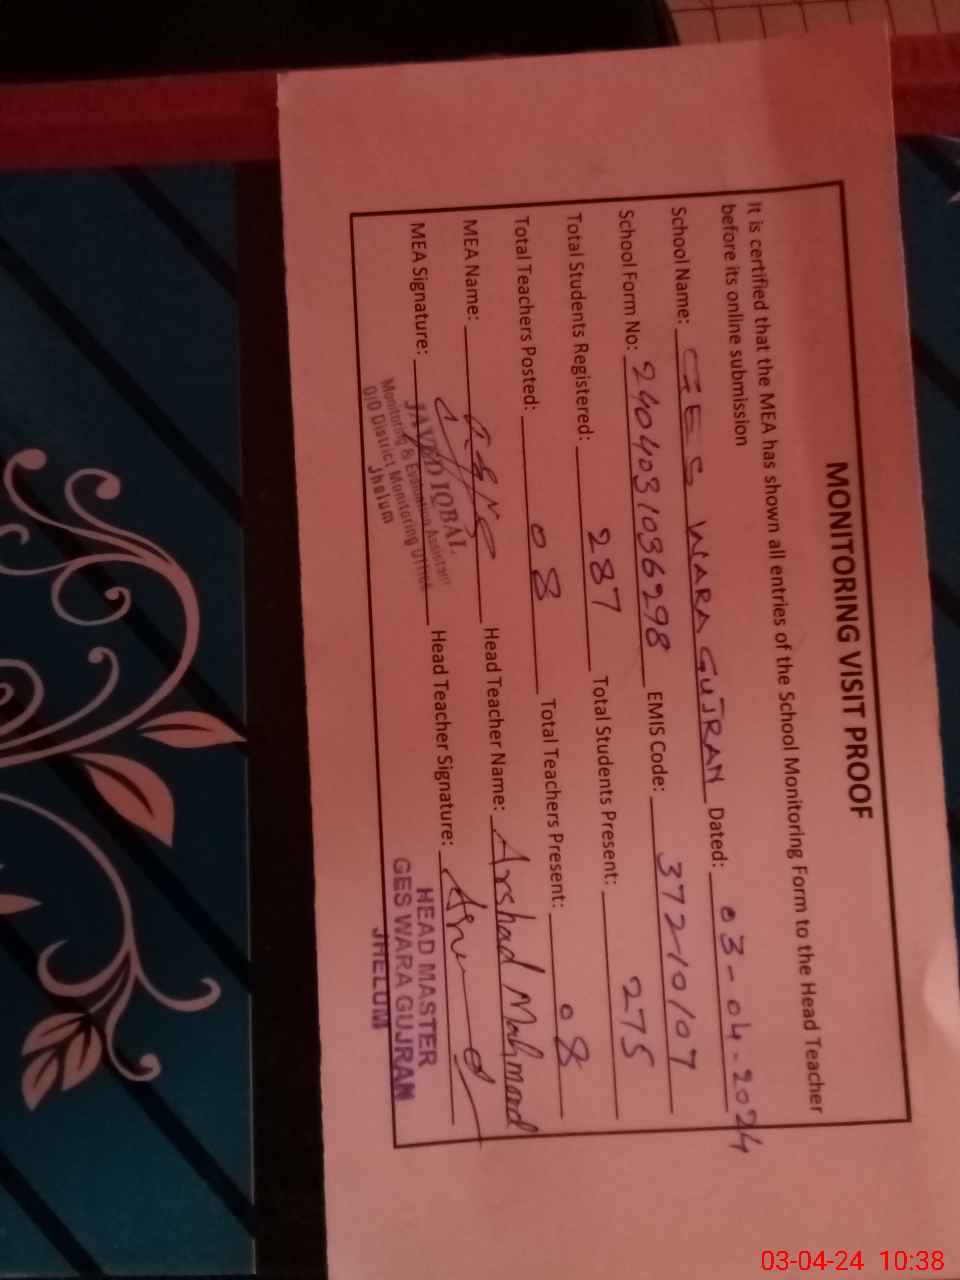 MONITORING VISIT PROOF
It is certified that the MEA has shown all entries of the School Monitoring Form to the Head Teacher
before its online submission
School Name: GES WARA GUJRAN Dated: 03-04-2024
School Form No: 2404031036298 EMIS Code: 37210107
Total Students Registered: 287 Total Students Present: 275
Total Teachers Posted: 08 Total Teachers Present: 08
MEA Name: Head Teacher Name: Arshad Mahmood
MEA Signature: Head Teacher Signature:
JAVED IQBAL
Monitoring & Evaluation Assistant
O/O District Monitoring Office
Jhelum
HEAD MASTER
GES WARA GUJRAN
JHELUM
03-04-24 10:38